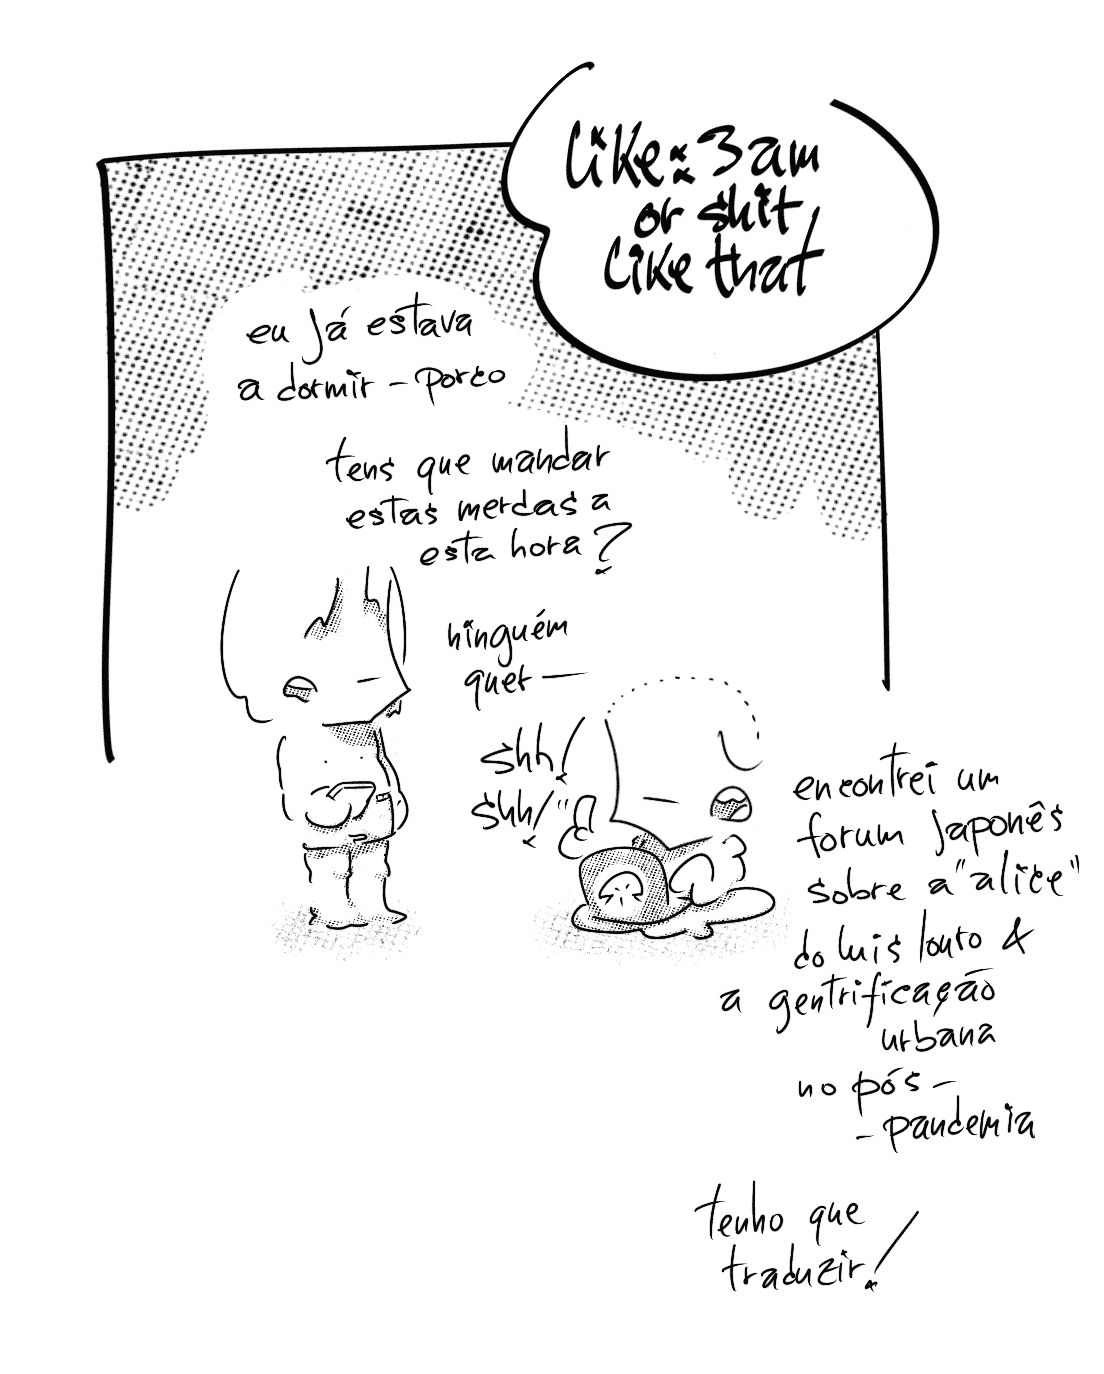 like: 3 am
or shit
like that
eu já estava
a dormir - porco
tens que mandar
estas merdas a
esta hora?
ninguém
quer —
shh!
shh!
encontrei um
forum japonês
sobre a "alice"
do luis louro &
a gentrificação
urbana
no pós -
- pandemia
tenho que
traduzir!